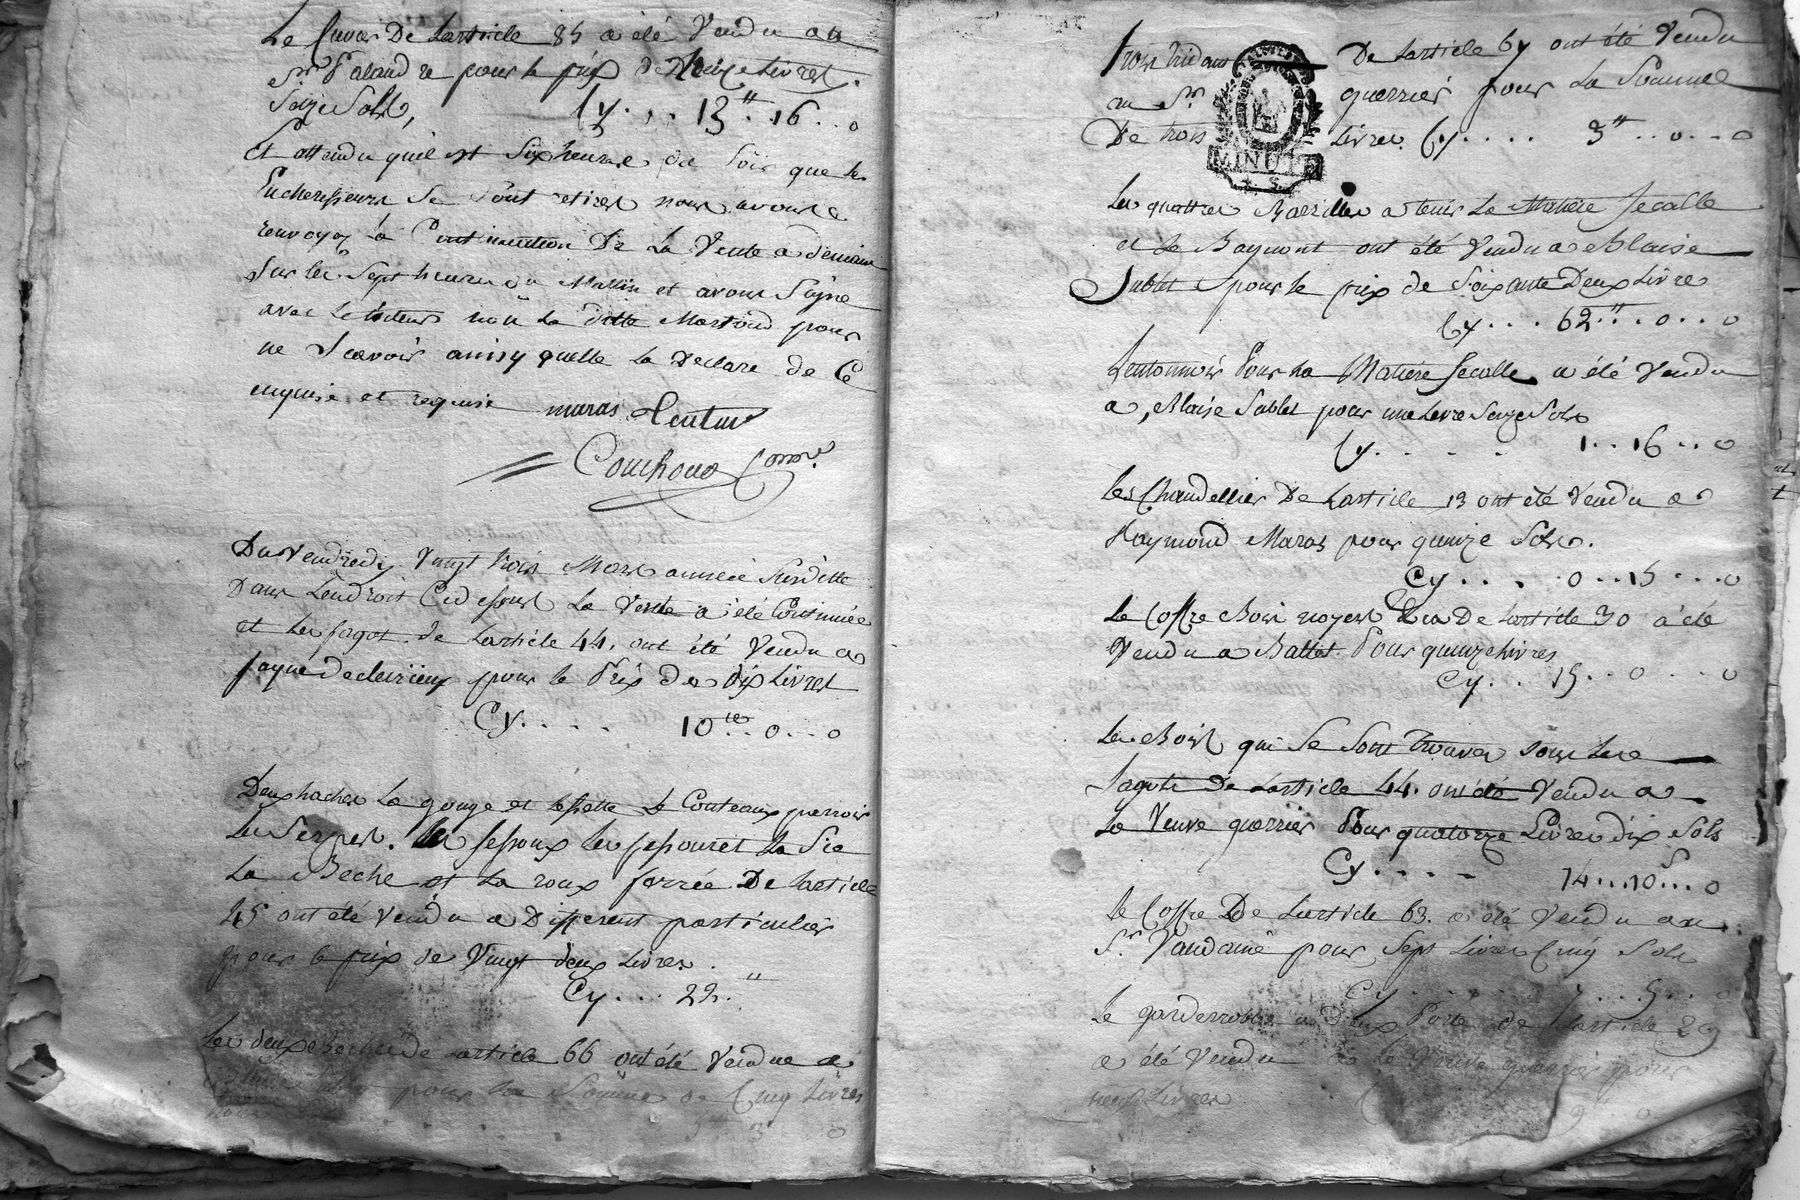 Le Cuvar De Larticle 85 a été Vendu au
Sr pour le prix de Treize Livres
Seize Sols,
Cy . . . 13 ₶ . 16 . . 0
Et attendu quil est Six heure du Soir que les
Encherisseurs Se Sont retires nous avons
renvoyez la Continuation De La Vente a demain
Sur les Sept heures du Mattin et avons Signe
avec Le tuteur non La ditte Mortoud pour
ne Scavoir ainsy quelle la Declare de Ce
enquise et requise maras
Couchoud Comre.
Du Vendredy Vingt trois Mars année Susditte
Dans Lendroit Cy dessus La Vente a été Continuée
et Les fagot de Larticle 44. ont été Vendu a
pour le Prix de Dix Livres
Cy . . . . 10 ₶ . . 0 . . . 0
Deux haches La gouge et Le Couteaux parroir
Les Serpes. Les Les La Sie
La Beche et La roux ferrée De Larticle
45 ont été Vendu a Different particulier
pour le prix de Vingt deux Livres.
Cy . . . 22. "
Les deux de Larticle 66 ont été Vendue a
pour La Somme de Cinq Livres
0
Trois De Larticle 67 ont été Vendu
au Sr guerrier pour La Somme
De trois Livres Cy . . . . 3 ₶ . . 0 . . . 0
MINUTE
Les quattres Barilles a tenir La Matiere fecalle
et Le Baymont ont été Vendu a Blaise
Sablet pour le prix de Soixante Deux Livre
Cy . . . 62 ₶ . . 0 . . . 0
Lentonnoir Pour La Matiere fecalle a été Vendu
a Blaise Sablet pour une Livre Seize Sols
Cy . . . . . 1 . . 16 . . 0
Les Chandellier De Larticle 13 ont été Vendu a
Raymond Maras pour quinze Sols.
Cy . . . . 0 . . 15 . . . 0
Le Coffre Bois noyer De Larticle 30 a été
Vendu a Battet Pour quinze Livres
Cy . . 15 . . 0 . . . 0
Les Bois qui Se Sont trouves Sous Les
fagots De Larticle 44. ont été Vendu a
La Veuve guerrier Pour quatorze Livres dix Sols
Cy . . . . 14 . . . 10 s . . 0
Le Coffre De Larticle 63. a été Vendu au
Sr. Vandainé pour Sept Livres Cinq Sols
Cy . . . . . . 7 . . . 5 . . 0
Le garderrobbe a deux Porte de Larticle 29
a été Vendu a La Veuve guerrier pour
neuf Livres
9 . . 0